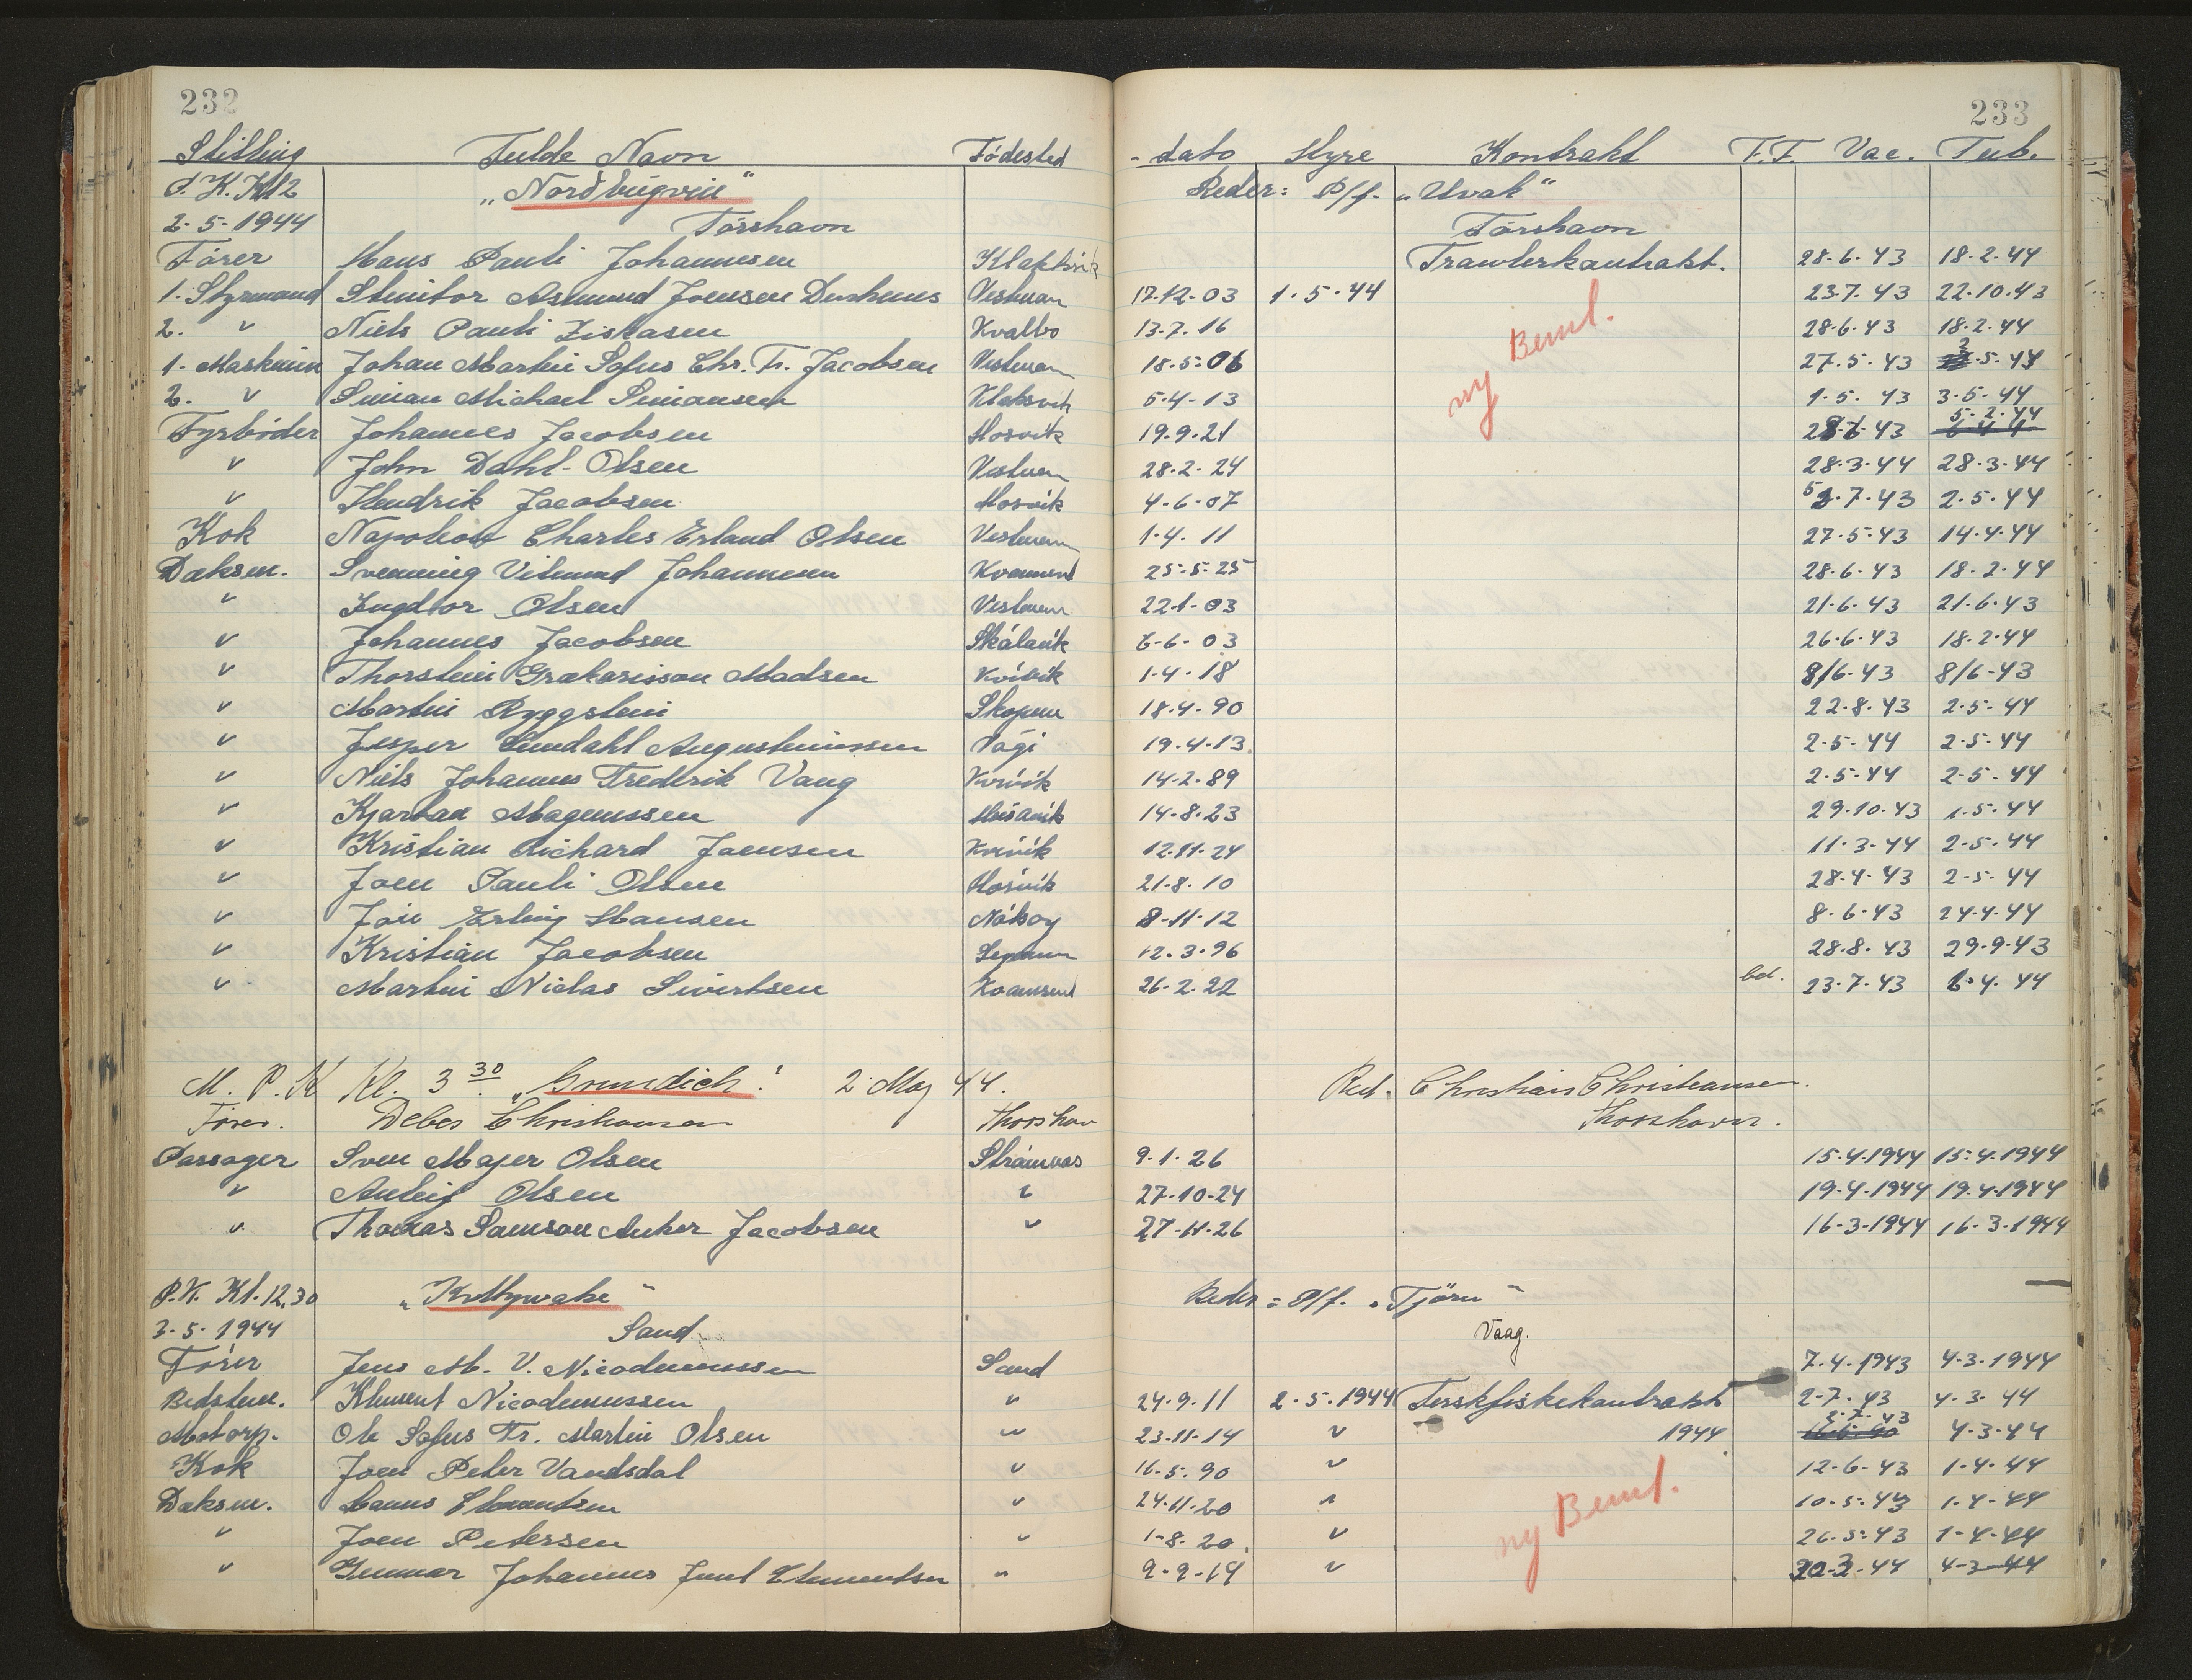 232
233
Stilling Fulde Navn Fødested - dato Hyre Kontrakt T.T. Vac. Tub.
P.K. Kl 2 "Nordbúgvin" Reder: P/f. "Uvak"
2-5-1944 Tórshavn Tórshavn
Fører Hans Pauli Johannesen Klaksvik Trawlerkontrakt. 28-6-43 18-2-44
1. Styrmand Asmund Joensen Vestman 17-12-03 1-5-44 23-7-43 22-10-43
2. " Niels Pauli Ziskasen Kvalbø 13-7-16 28-6-43 18-2-44
ny Beml.
1. Maskinm Johan Martin Sofus Chr. Fr. Jacobsen Vestman 18-5-06 27-5-43 3-5-44
2. " Simian Michael Simonsen Klaksvik 5-4-13 1-5-43 3-5-44
Fyrbøder Johannes Jacobsen Hosvik 19-9-21 28-6-43 5-2-44
" John Dahl-Olsen Vestman 28-2-24 28-3-44 28-3-44
" Hendrik Jacobsen Hosvik 4-6-07 5-7-43 2-5-44
Kok Napoleon Charles Erland Olsen Vestman 1-4-11 27-5-43 14-4-44
Dæksm. Svenning Vilmund Johannesen Kvannesund 25-5-25 28-6-43 18-2-44
" Olsen Vestman 22-1-03 21-6-43 21-6-43
" Johannes Jacobsen Skálavík 6-6-03 26-6-43 18-2-44
" Thorstein Grækarisson Madsen Kvívík 1-4-18 8/6-43 8/6-43
" Martin Ryggstein Skopun 18-4-90 22-8-43 2-5-44
" Jesper Lindahl Augustinussen Vági 19-4-13 2-5-44 2-5-44
" Niels Johannes Frederik Vang Kvívík 14-2-89 2-5-44 2-5-44
" Kjartan Magnussen Húsavík 14-8-23 29-10-43 1-5-44
" Kristian Richard Joensen Kvívík 12-11-24 11-3-44 2-5-44
" Joen Pauli Olsen Hósvík 21-8-10 28-4-43 2-5-44
" Jóin Erling Hansen Nólsoy 8-11-12 8-6-43 24-4-44
" Kristian Jacobsen 12-3-96 28-8-43 29-9-43
" Martin Niclas Sivertsen Kvannesund 26-2-22 bd. 23-7-43 6-4-44
M.P.K Kl. 3 30 "Grundich" 2 Maj 44. Red. Christian Christiansen.
Fører. Debes Christiansen Thorshavn Thorshavn.
Passager Sven Majer Olsen Strámnas 9-1-26 15-4-1944 15-4-1944
" Anleif Olsen " 27-10-24 19-4-1944 19-4-1944
" Thomas Samson Anker Jacobsen " 27-11-26 16-3-1944 16-3-1944
P.K. Kl. 12,30 "Kittywake" Reder: P/f. "Tjørn"
3-5-1944 Sand Vaag.
Fører Jens M. V. Nicodemussen Sand 7-4-1943 4-3-1944
Bedstem. Klement Nicodemussen " 24-9-11 2-5-1944 Torskfiskekontrakt 2-7-43 4-3-44
Motorp. Ole Sofus Fr. Martin Olsen " 23-11-14 " 1944 2-7-43 4-3-44
Kok Joen Peter Vandsdal " 16-5-90 " 12-6-43 1-4-44
Dæksm. Hanus Clementsen " 24-11-20 " 10-5-43 1-4-44
ny Beml.
" Joen Petersen " 1-8-20 " 26-5-43 1-4-44
" Gunnar Johannes Juul Clementsen " 9-9-19 " 20-3-44 4-3-44